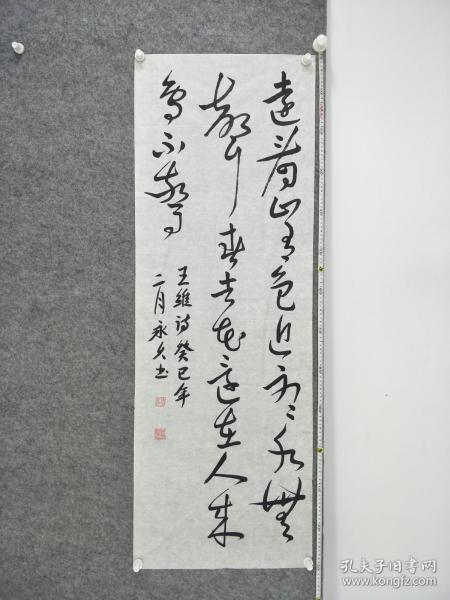 遠看山有色近聽水無
聲春去花還在人來
鳥不驚
王維詩癸巳年
二月永久书
孔夫子旧书网
www.kongfz.com